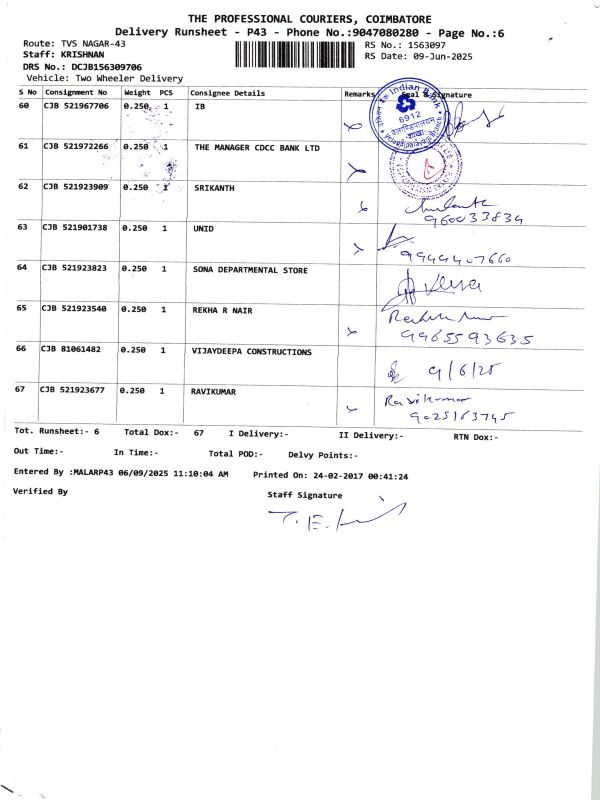 THE PROFESSIONAL COURIERS, COIMBATORE
Delivery Runsheet - P43 - Phone No.:9047080280 - Page No.:6
Route: TVS NAGAR-43
RS No.: 1563097
Staff: KRISHNAN
RS Date: 09-Jun-2025
DRS No.: DCJB156309706
Vehicle: Two Wheeler Delivery
S No Consignment No Weight PCS Consignee Details Remarks Seal & Signature
60 CJB 521967706 0.250 1 IB
Indian Bank
6912
शाखा
61 CJB 521972266 0.250 1 THE MANAGER CDCC BANK LTD
62 CJB 521923909 0.250 1 SRIKANTH
960033834
63 CJB 521901738 0.250 1 UNID
9944407660
64 CJB 521923823 0.250 1 SONA DEPARTMENTAL STORE
65 CJB 521923540 0.250 1 REKHA R NAIR
9965593635
66 CJB 81061482 0.250 1 VIJAYDEEPA CONSTRUCTIONS
9/6/25
67 CJB 521923677 0.250 1 RAVIKUMAR
Ravikumar
9025163745
Tot. Runsheet:- 6 Total Dox:- 67 I Delivery:- II Delivery:- RTN Dox:-
Out Time:- In Time:- Total POD:- Delvy Points:-
Entered By :MALARP43 06/09/2025 11:10:04 AM Printed On: 24-02-2017 00:41:24
Verified By
Staff Signature